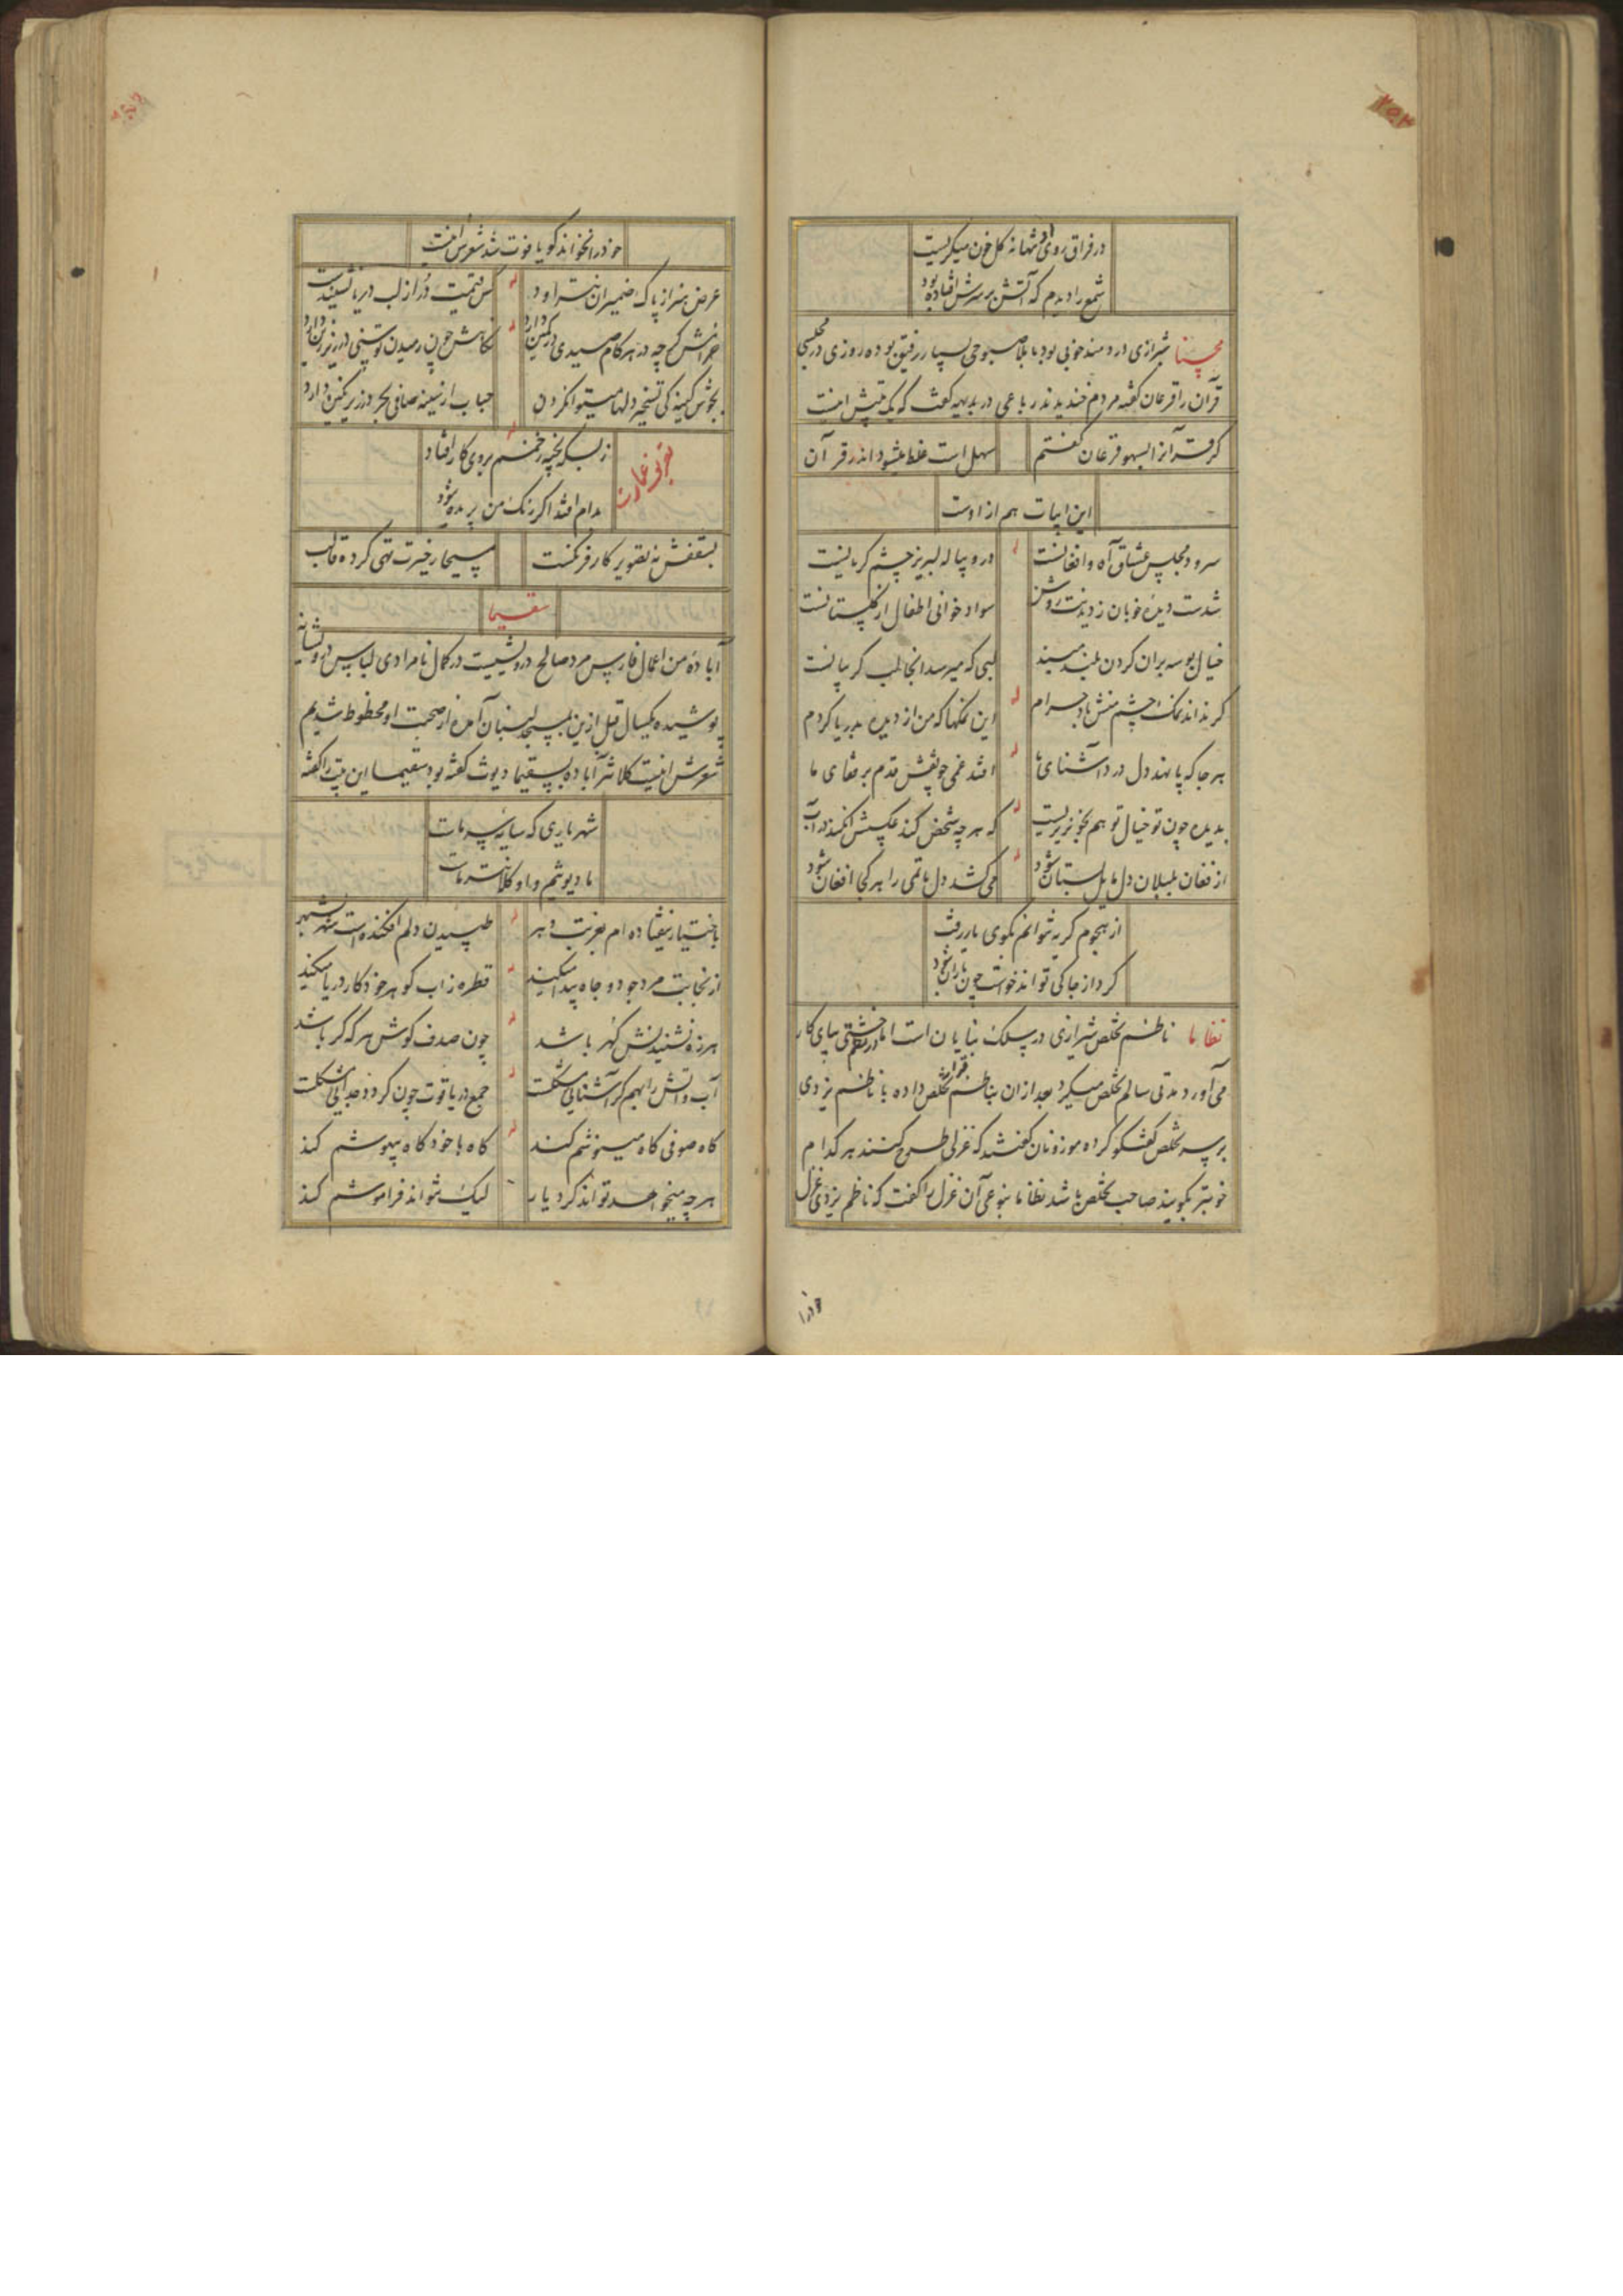 در فراق روی او تنها نه گل خون میگریست
شمع را دیدم که آتش بر سرش افتاده بود
محسنا شیرازی دردمند خوبی بود با ملا صبوحی بسیار رفیق بوده روزی در مجلسی
قرآن را قرعان گفته مردم خندیدند رباعی در بدیهه گفت که یک بیتش اینست
گر قرآنرا بسهو قرعان گفتم سهل است غلط میشود اندر قرآن
این ابیات هم از اوست
سرود مجلس عشاق آه و افغانست درو پیاله لبریز چشم گریانست
شدست دیده خوبان ز دیدنت روشن سواد خوانی اطفال از گلستانست
خیال بوسه بران گردن بلند مبند لبی که میرسد آنجا لب گریبانست
گر نداند نمک چشم منش باد حرام این نمکها که من از دیده بدریا کردم
هر جا که پا نهد دل درد آشنای ما افتد غمی چو نقش قدم بر قفای ما
بدیده چون تو خیال تو هم بخونریزیست که هر چه شخص کند عکسش افکند در آب
از فغان بلبلان دل مایل بستان شود می کشد دل ماتمی را هر کجا افغان شود
از هجوم گریه نتوانم بکوی یار رفت
گرد از جا کی تواند خواست چون باران شود
نظاما ناظم تخلص شیرازی در سلک بنایان است اما در نظم خشتی بپای کار
می آورد مدتی سالم تخلص میکرد بعد از ان بناظم قرار تخلص داده با ناظم یزدی
بر سر تخلص گفتگو کرده موزونان گفتند که غزلی طرح کنند هر کدام
خوبتر بگویند صاحب تخلص باشد نظاما بنوعی آن غزل را گفت که ناظم یزدی غزل
خود را
خود را نخواند گویا فوت شد شعرش اینست
عرض هنر از پاک ضمیران نتراود کس قیمت در از لب دریا نشنیدست
خرامش گرچه در هر گام صیدی در کمین دارد نگاهش چون رمیدن توسنی در زیر زین دارد
بجوش کینه کی تسخیر دلها میتوان کردن حباب از سینه صافی بحر در زیر نگین دارد
ز بسکه بخیه زخمم بروی کار افتاد
تعریف عمارت
مدام افتد اگر رنگ من پریده شود
بسقفش نه تصویر کار فرنگست مسیحا ز حیرت تهی کرده قالب
سقیما
آباده من اعمال فارس مرد صالح درویشیست در کمال نامرادی لباس درویشانه
پوشیده یکسال قبل ازین بمسجد لنبان آمده از صحبت او محظوظ شدیم
شعرش اینست کلانتر آباده بسقیما دیوث گفته بود سقیما این بیت را گفته
شهریاری که سایه سر ماست
ما دیوثیم و او کلانتر ماست
باختیار نیفتاده ام بغربت دهر طپیدن دلم افکنده است شهر بشهر
از نجابت مرد جود و جاه پیدا میکند قطره ز آب گوهر خود کار دریا میکند
هرزه نشنیدنش گهر باشد چون صدف گوش هر که کر باشد
آب و آتش را بهم گر آشنایی مشکلست جمع در یاقوت چون گردد جدایی مشکلست
گاه صوفی گاه مینوشم کند گاه با خود گاه بیهوشم کند
هر چه میخواهد تواند کرد یار لیک نتواند فراموشم کند